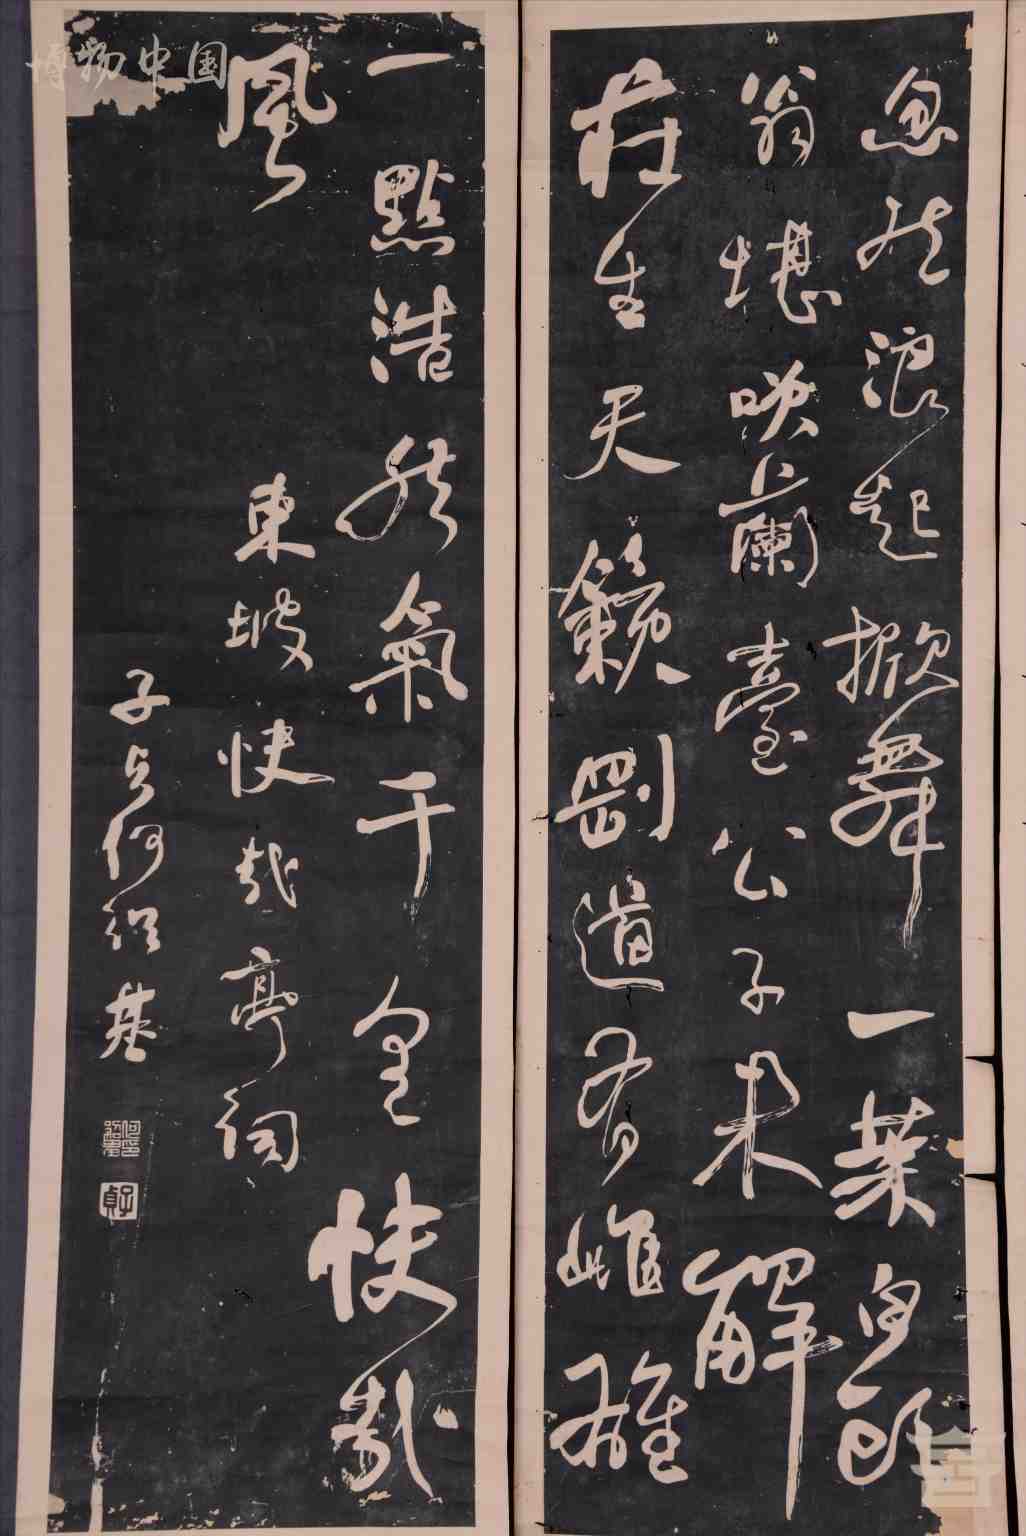 忽然浪起掀舞一葉白頭
翁堪咲蘭臺公子未解
莊生天籟剛道有雌雄
一點浩然氣千里快哉
風
東坡快哉亭詞
子貞何紹基
何紹基印
子貞
博物中国